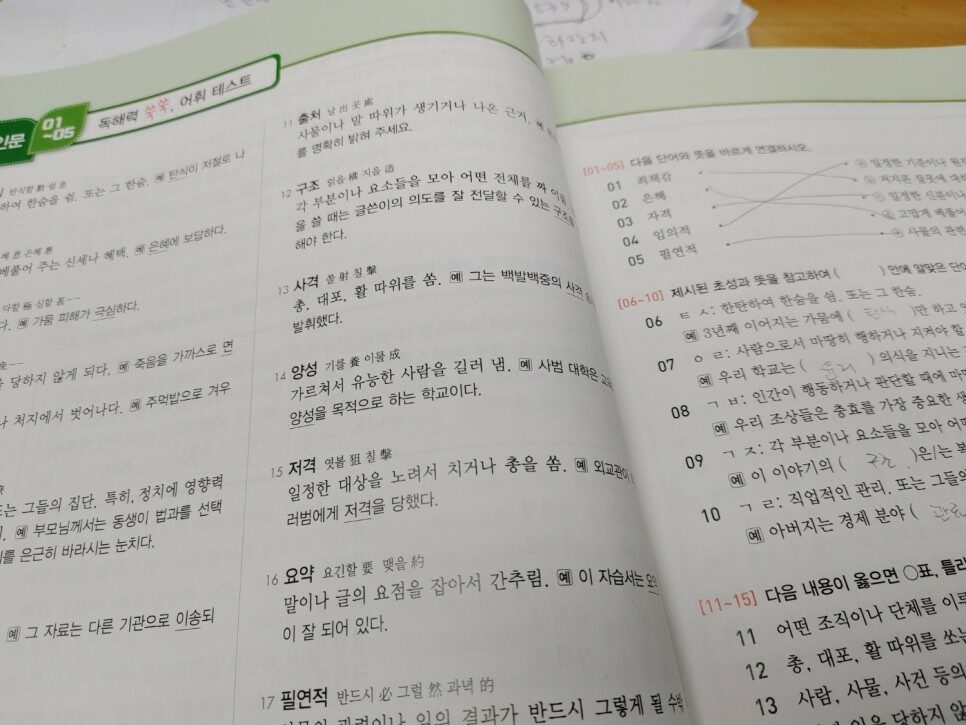 인문
01
~05
독해력 쑥쑥, 어휘 테스트
탄식할 歎 쉴 息
하여 한숨을 쉼. 또는 그 한숨. 예 탄식이 저절로 나
은혜 惠
베풀어 주는 신세나 혜택. 예 은혜에 보답하다.
다할 極 심할 甚--
다. 예 가뭄 피해가 극심하다.
당하지 않게 되다. 예 죽음을 가까스로 면
나 처지에서 벗어나다. 예 주먹밥으로 겨우
또는 그들의 집단. 특히, 정치에 영향력
예 부모님께서는 동생이 법과를 선택
를 은근히 바라시는 눈치다.
예 그 자료는 다른 기관으로 이송되
11 출처 날 出 곳 處
사물이나 말 따위가 생기거나 나온 근거. 예
를 명확히 밝혀 주세요.
12 구조 얽을 構 지을 造
각 부분이나 요소들을 모아 어떤 전체를 짜
을 쓸 때는 글쓴이의 의도를 잘 전달할 수 있는 구조를
해야 한다.
13 사격 쏠 射 칠 擊
총, 대포, 활 따위를 쏨. 예 그는 백발백중의 사격
발휘했다.
14 양성 기를 養 이룰 成
가르쳐서 유능한 사람을 길러 냄. 예 사범 대학은
양성을 목적으로 하는 학교이다.
15 저격 엿볼 狙 칠 擊
일정한 대상을 노려서 치거나 총을 쏨. 예 외교관이
러범에게 저격을 당했다.
16 요약 요긴할 要 맺을 約
말이나 글의 요점을 잡아서 간추림. 예 이 자습서는 요약
이 잘 되어 있다.
17 필연적 반드시 必 그럴 然 과녁 的
사물의 관련이나 일의 결과가 반드시 그렇게 될 수밖
[01~05] 다음 단어와 뜻을 바르게 연결하시오.
01 죄책감
02 은혜
03 자격
04 임의적
05 필연적
㉠ 일정한 기준이나
㉡ 저지른 잘못에 대하
㉢ 일정한 신분이나
㉣ 고맙게 베풀어
㉤ 사물의 관련
[06~10] 제시된 초성과 뜻을 참고하여 ( ) 안에 알맞은 단어
06 ㅌㅅ: 한탄하여 한숨을 쉼. 또는 그 한숨.
예 3년째 이어지는 가뭄에 ( 탄식 )만 하고
07 ㅇㄹ: 사람으로서 마땅히 행하거나 지켜야 할
예 우리 학교는 ( 윤리 ) 의식을 지니는
08 ㄱㅂ: 인간이 행동하거나 판단할 때에 마땅
예 우리 조상들은 충효를 가장 중요한
09 ㄱㅈ: 각 부분이나 요소들을 모아 어떤
예 이 이야기의 ( 구조 )은/는
10 ㄱㄹ: 직업적인 관리. 또는 그들의
예 아버지는 경제 분야 ( 관료
[11~15] 다음 내용이 옳으면 ○표, 틀리
11 어떤 조직이나 단체를 이루
12 총, 대포, 활 따위를 쏘는
13 사람, 사물, 사건 등의